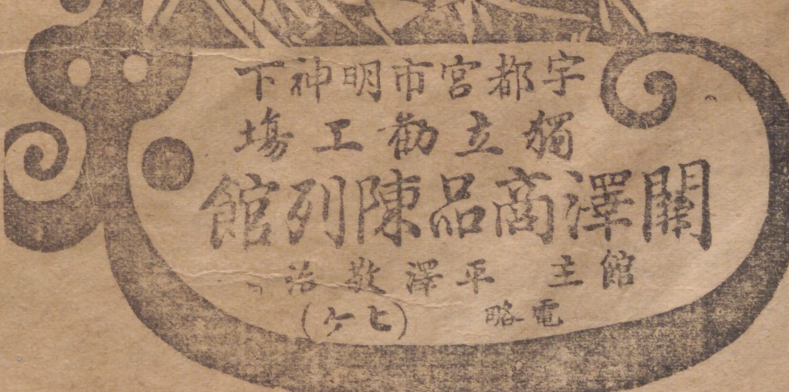 宇都宮市明神下
獨立勧工場
關澤商品陳列館
館主 平澤敬治
電略 (ヒケ)